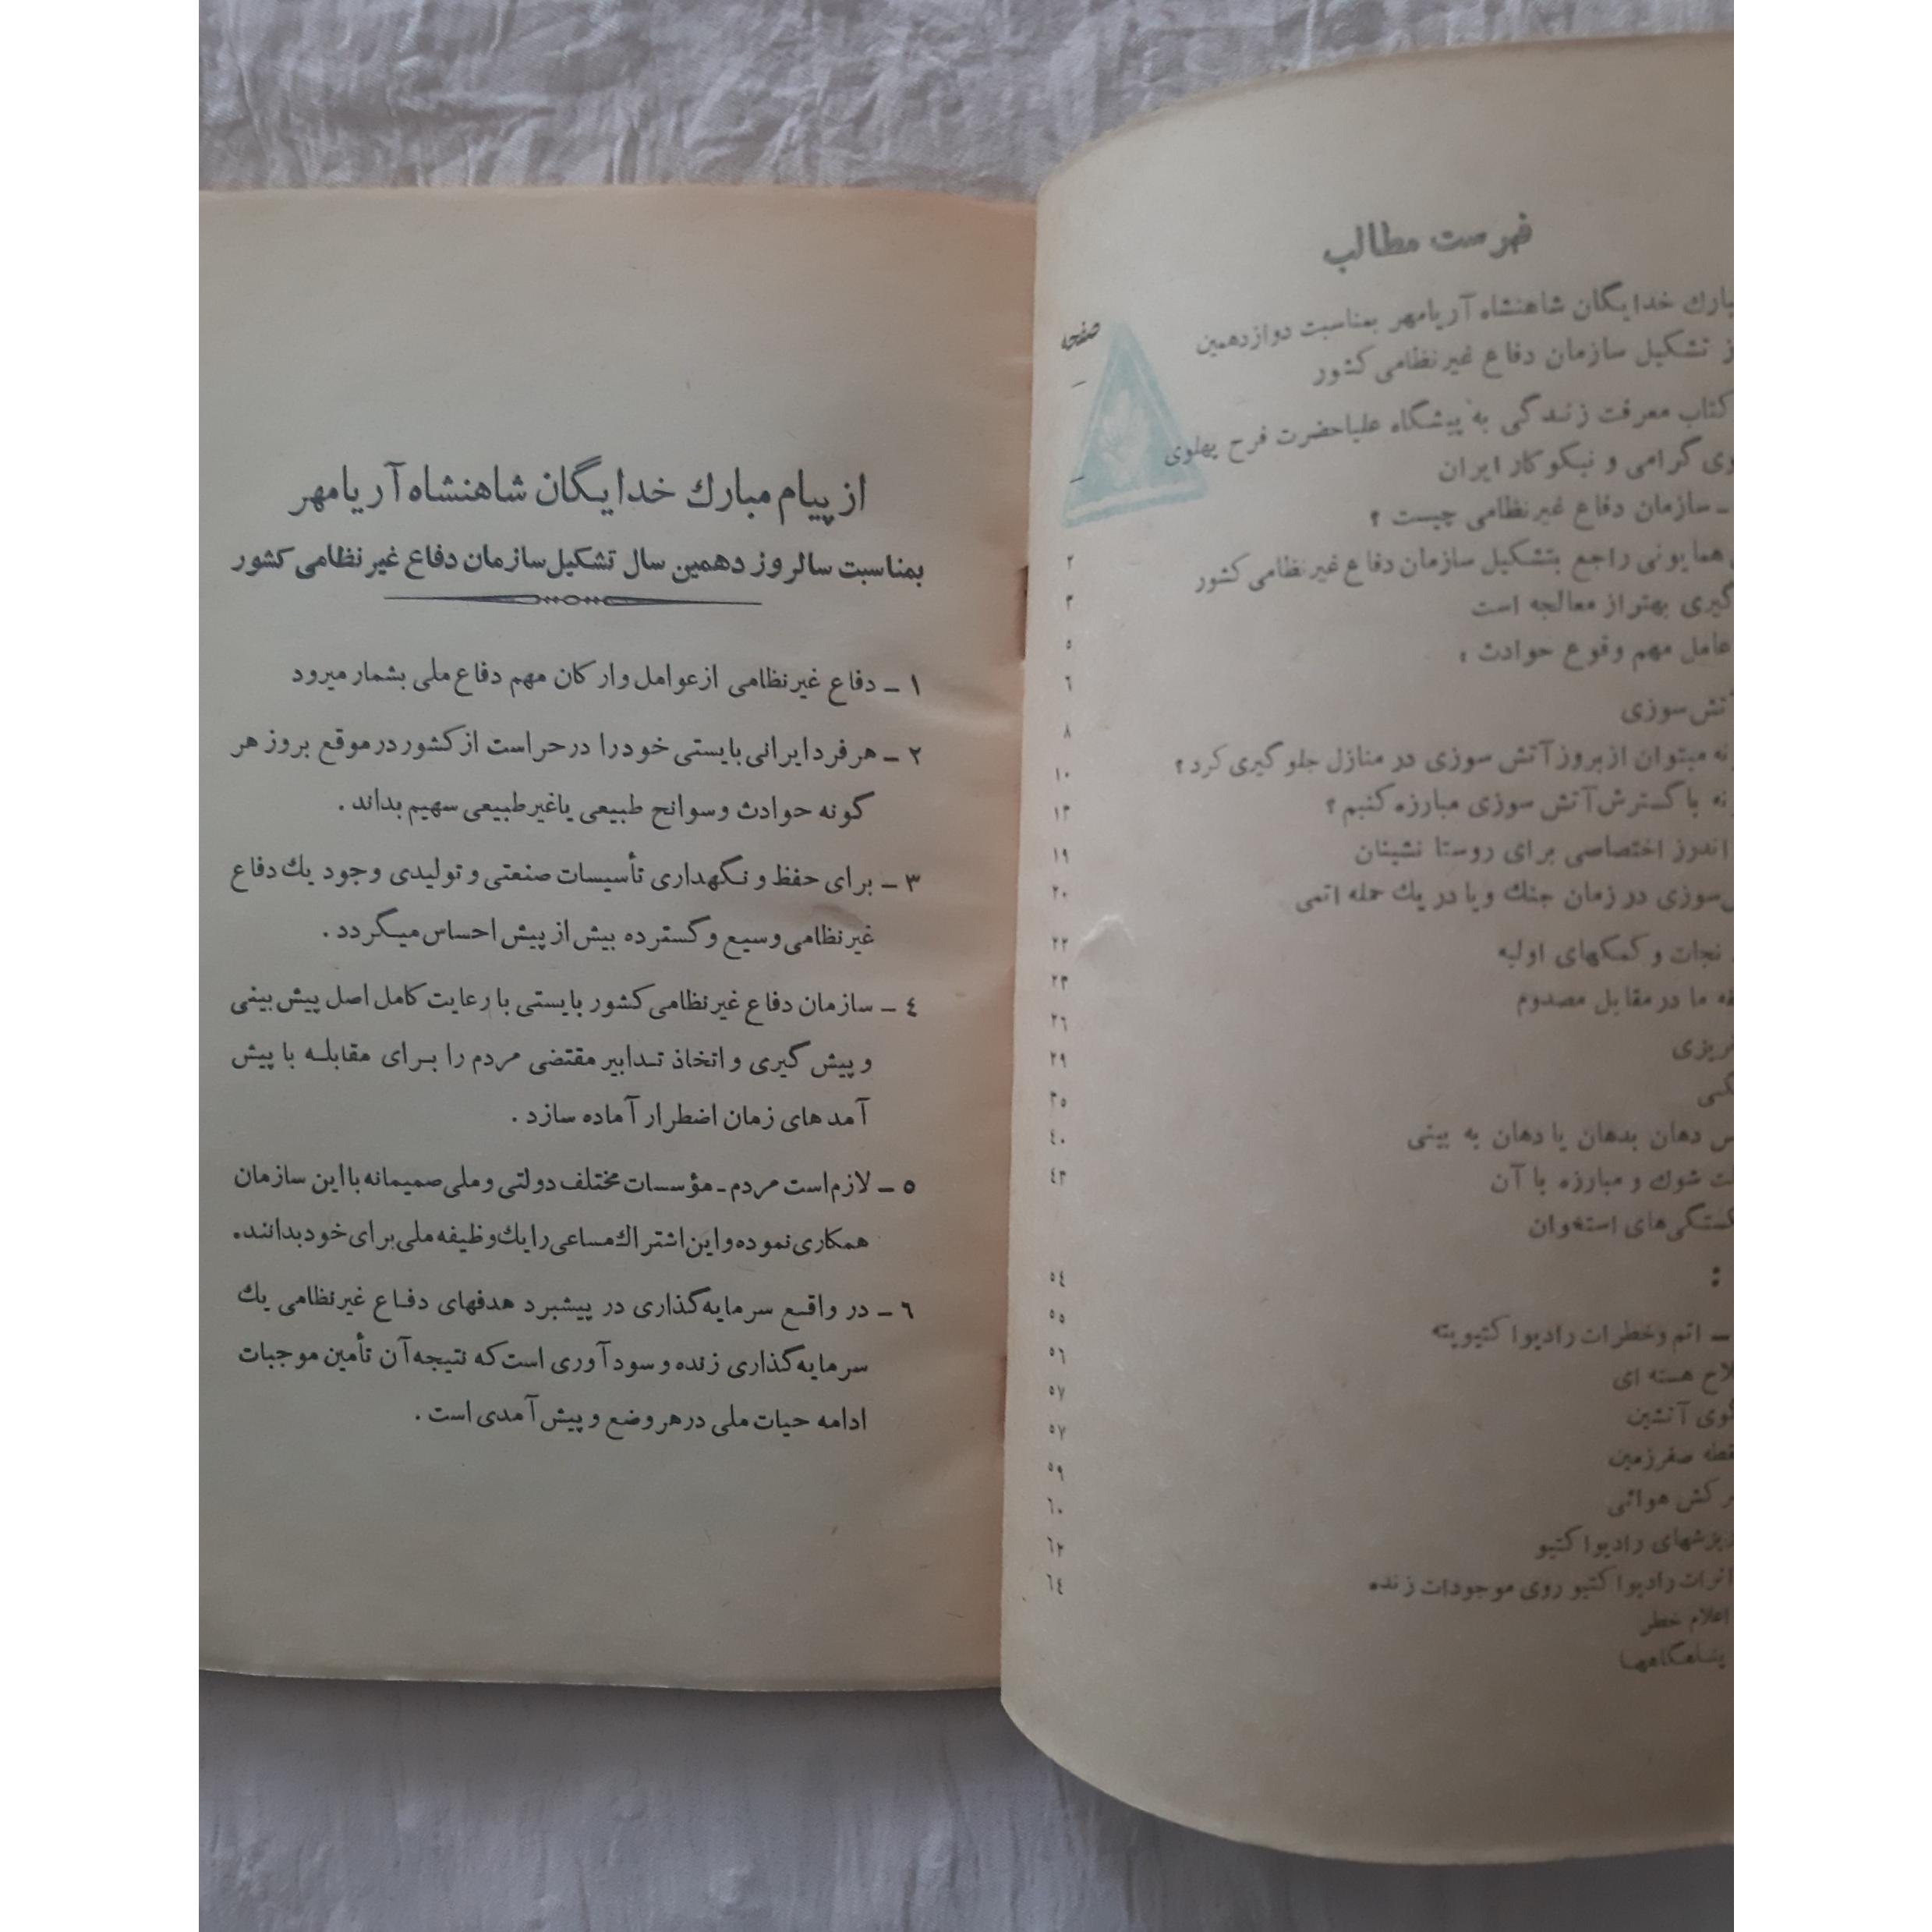 فهرست مطالب
صفحه
خدایگان شاهنشاه آریامهر بمناسبت دوازدهمین
تشکیل سازمان دفاع غیرنظامی کشور
–
کتاب معرفت زندگی به پیشگاه علیاحضرت فرح پهلوی
گرامی و نیکوکار ایران
–
ـ سازمان دفاع غیرنظامی چیست ؟
همایونی راجع بتشکیل سازمان دفاع غیرنظامی کشور
۲
گیری بهتر از معالجه است
۳
عامل مهم وقوع حوادث :
۵
سوزی
۶
میتوان از بروز آتش سوزی در منازل جلوگیری کرد؟
۸
با گسترش آتش سوزی مبارزه کنیم ؟
۱۰
اندرز اختصاصی برای روستا نشینان
۱۳
سوزی در زمان جنك ویا در یك حمله اتمی
۱۹
۲۰
نجات و کمکهای اولیه
۲۲
ما در مقابل مصدوم
۲۳
۲۶
۲۹
دهان بدهان یا دهان به بینی
۳۵
شوك و مبارزه با آن
۴۰
های استخوان
۴۳
:
ـ اتم وخطرات رادیواکتیویته
۵۴
هسته ای
۵۵
آتشین
۵۶
صفرزمین
۵۷
کش هوائی
۵۷
رادیواکتیو
۵۹
رادیواکتیو روی موجودات زنده
۶۰
اعلام خطر
۶۲
پناهگاهها
۶۴
از پیام مبارك خدایگان شاهنشاه آریامهر
بمناسبت سالروز دهمین سال تشکیل سازمان دفاع غیرنظامی کشور
۱ ـ دفاع غیرنظامی ازعوامل وارکان مهم دفاع ملی بشمار میرود
۲ ـ هرفردایرانی بایستی خودرا درحراست ازکشور درموقع بروز هر
گونه حوادث وسوانح طبیعی یاغیرطبیعی سهیم بداند .
۳ ـ برای حفظ و نگهداری تأسیسات صنعتی و تولیدی وجود یك دفاع
غیرنظامی وسیع وگسترده بیش از پیش احساس میگردد .
٤ ـ سازمان دفاع غیرنظامی کشور بایستی با رعایت کامل اصل پیش بینی
و پیش گیری و اتخاذ تدابیر مقتضی مردم را برای مقابله با پیش
آمدهای زمان اضطرار آماده سازد .
٥ ـ لازم است مردم ـ مؤسسات مختلف دولتی وملی صمیمانه با این سازمان
همکاری نموده و این اشتراك مساعی را یك وظیفه ملی برای خود بدانند.
٦ ـ در واقع سرمایه‌گذاری در پیشبرد هدفهای دفاع غیرنظامی یك
سرمایه‌گذاری زنده و سودآوری است که نتیجه آن تأمین موجبات
ادامه حیات ملی درهر وضع و پیش آمدی است .